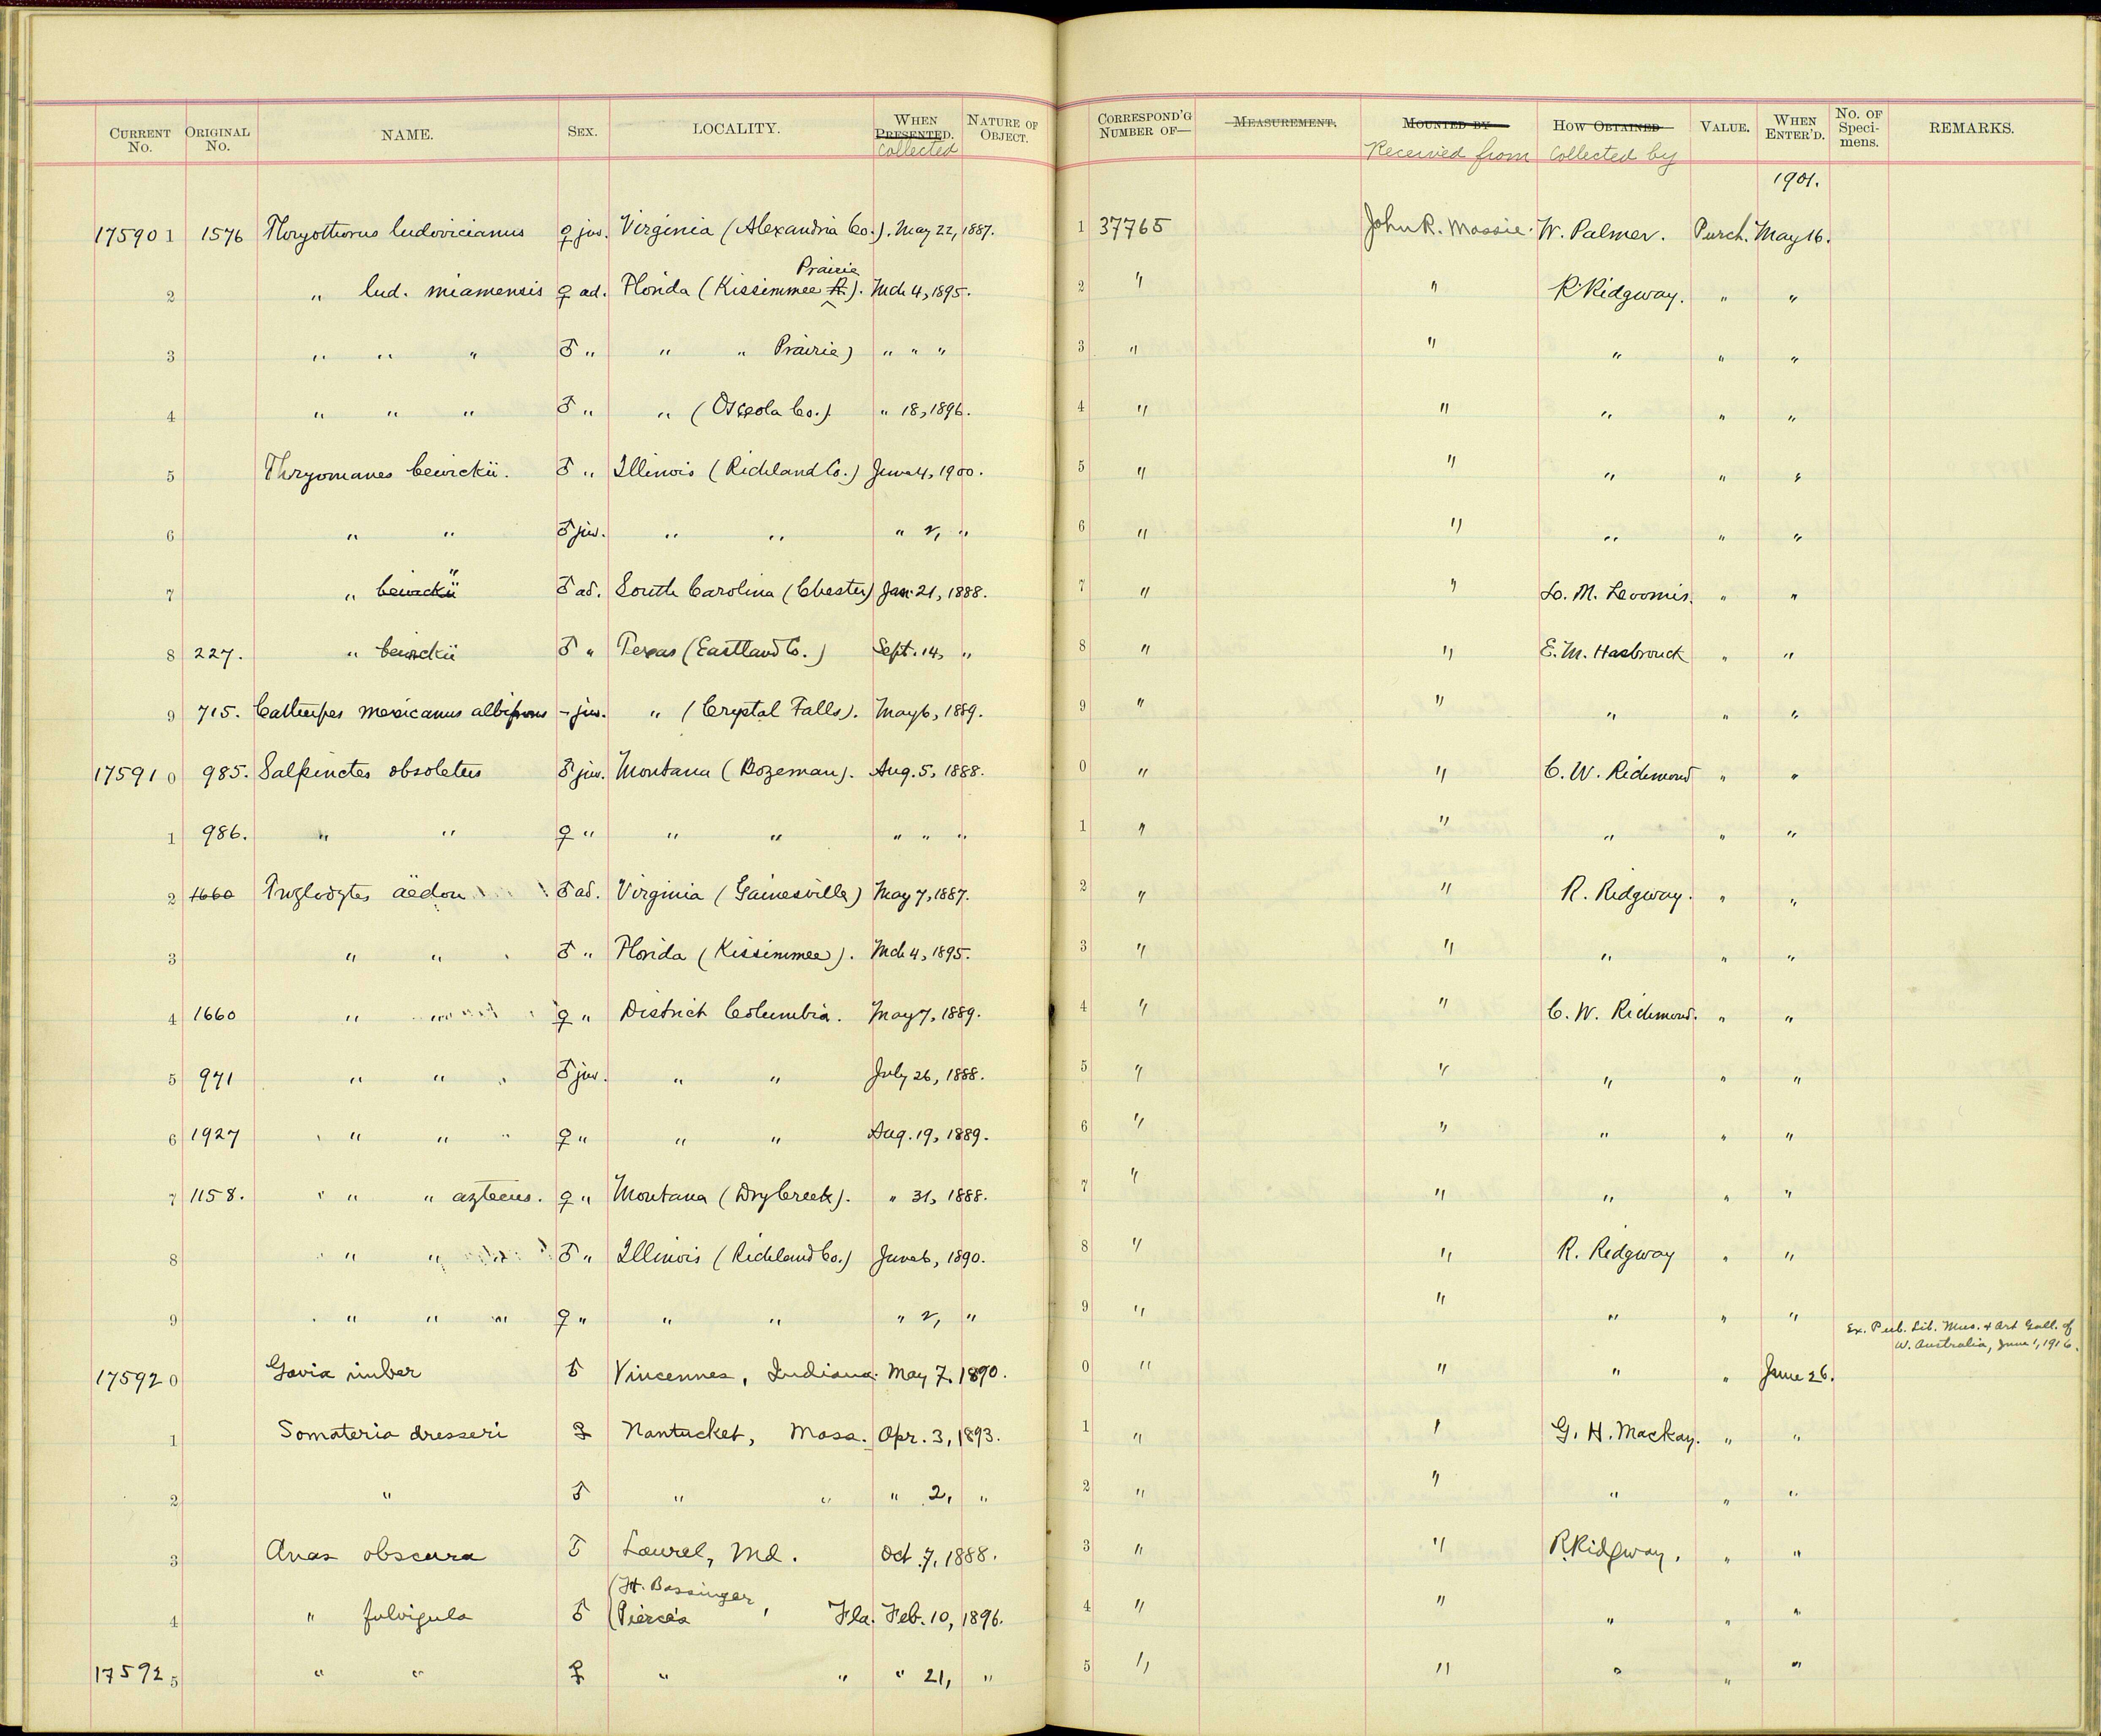 CURRENT No. ORIGINAL No. NAME. SEX. LOCALITY. WHEN PRESENTED. collected NATURE OF OBJECT. CORRESPOND'G NUMBER OF— MEASUREMENT. MOUNTED BY Received from HOW OBTAINED collected by VALUE. WHEN ENTER'D. No. OF Speci-mens. REMARKS.
1901.
17590 1 1576 Thryothorus ludovicianus ♀ juv. Virginia (Alexandria Co.). May 22, 1887. 1 37765 John R. Massie. W. Palmer. Purch. May 16.
2 " lud. miamensis ♀ ad. Florida (Kissimmee R. Prairie). Mch 4, 1895. 2 " " R Ridgway. " "
3 " " " ♂ " " " Prairie) " " " 3 " " " " "
4 " " " ♂ " " (Osceola Co.) " 18, 1896. 4 " " " " "
5 Thryomanes bewickii. ♂ " Illinois (Richland Co.) June 4, 1900. 5 " " " " "
6 " " ♂ juv. " " " 2, " 6 " " " " "
7 " bewickii " ♂ ad. South Carolina (Chester) Jan. 21, 1888. 7 " " L. M. Loomis. " "
8 227. " bewickii ♂ " Texas (Eastland Co.) Sept. 14, " 8 " " E. M. Hasbrouck " "
9 715. Catherpes mexicanus albifrons – juv. " (Crystal Falls). May 6, 1889. 9 " " " " "
17591 0 985. Salpinctes obsoletus ♂ juv. Montana (Bozeman). Aug. 5, 1888. 0 " " C. W. Richmond " "
1 986. " " ♀ " " " " " " 1 " " " " "
2 1660 Troglodytes aëdon ♂ ad. Virginia (Gainesville) May 7, 1887. 2 " " R. Ridgway. " "
3 " " ♂ " Florida (Kissimmee). Mch 4, 1895. 3 " " " " "
4 1660 " " ♀ " District Columbia. May 7, 1889. 4 " " C. W. Richmond. " "
5 971 " " ♂ juv. " " July 26, 1888. 5 " " " " "
6 1927 " " ♀ " " " Aug. 19, 1889. 6 " " " " "
7 1158. " " aztecus. ♀ " Montana (Dry Creek). " 31, 1888. 7 " " " " "
8 " " ♂ " Illinois (Richland Co.) June 6, 1890. 8 " " R. Ridgway " "
9 " " " ♀ " " " " 2, " 9 " " " " "
Ex. Pub. Lib. Mus. & Art Gall. of
W. Australia, June 1, 1916.
17592 0 Gavia imber ♂ Vincennes, Indiana. May 7, 1890. 0 " " " " June 26.
1 Somateria dresseri ♀ Nantucket, Mass. Apr. 3, 1893. 1 " " G. H. Mackay. " "
2 " ♂ " " " 2, " 2 " " " " "
3 Anas obscura ♂ Laurel, Md. Oct. 7, 1888. 3 " " R. Ridgway. " "
(Ft. Bassinger
4 " fulvigula ♂ (Pierce's, Fla. Feb. 10, 1896. 4 " " " " "
17592 5 " " ♀ " " " 21, " 5 " " " " "